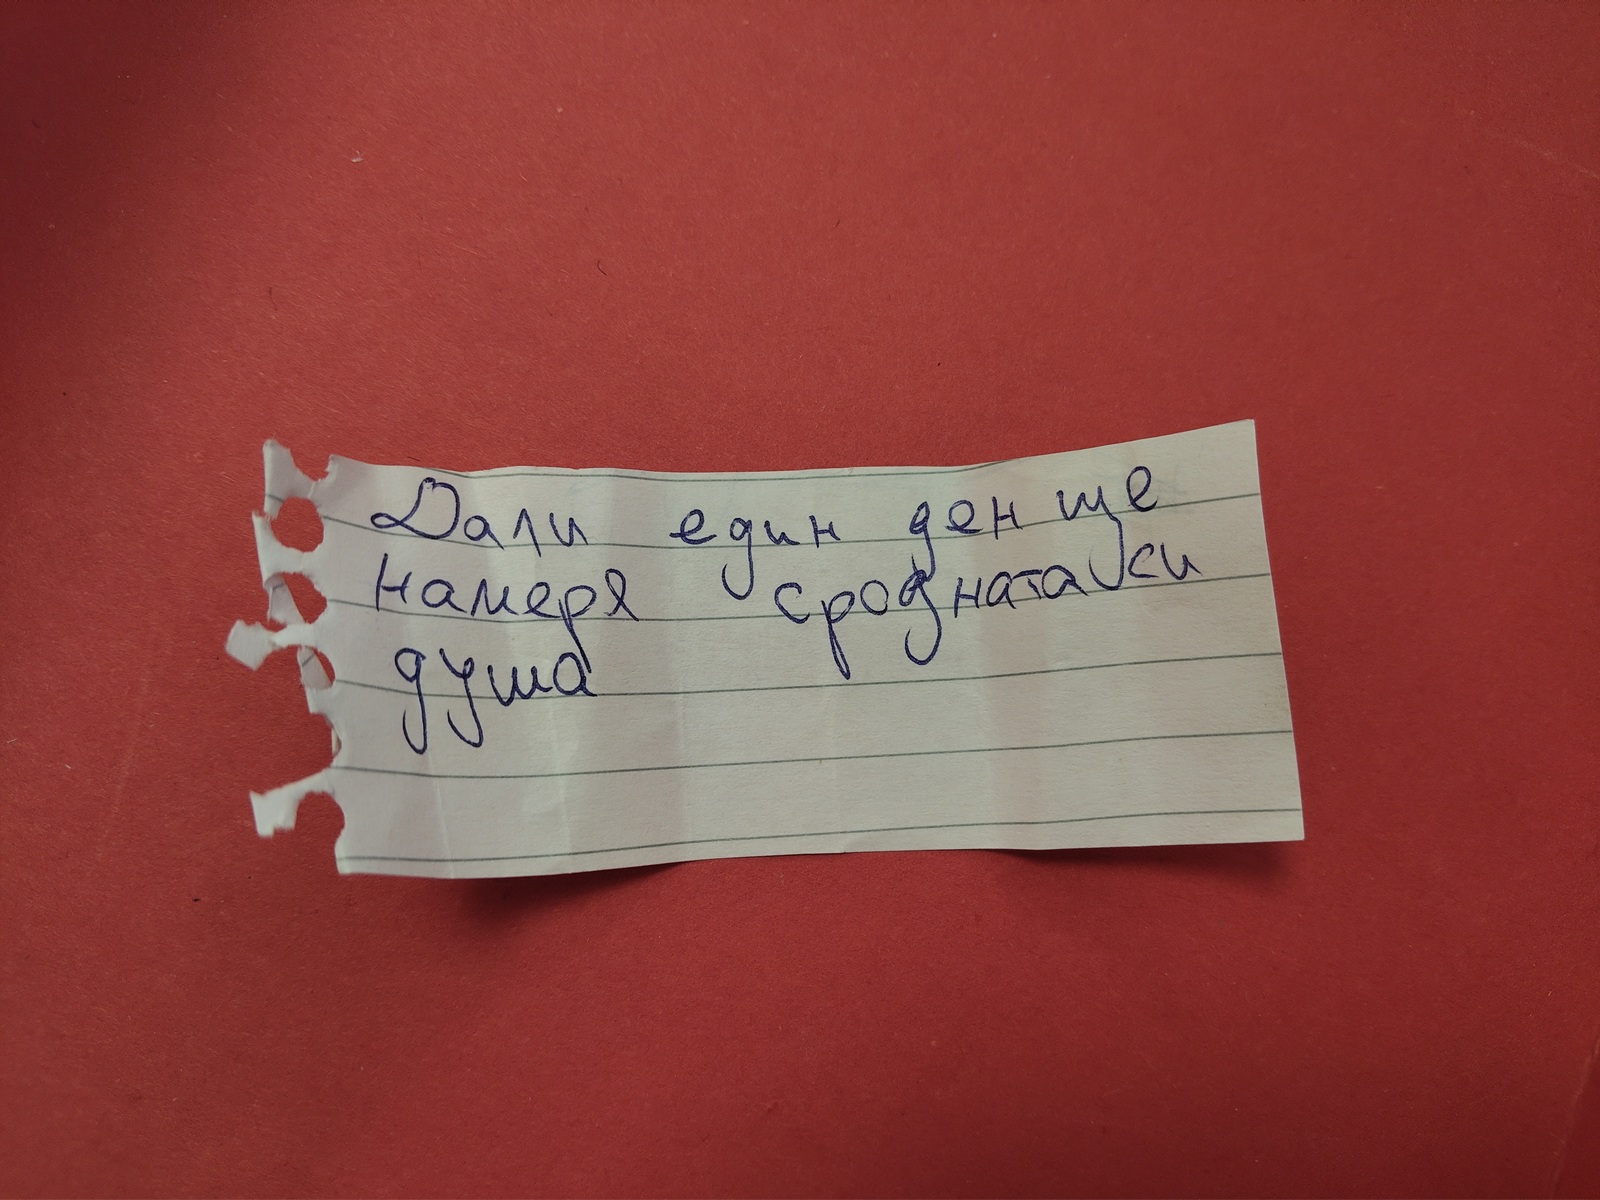 Дали един ден ще
намеря сродната си
душа